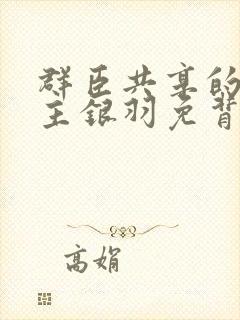 群臣共享的
主银羽免背
高娟